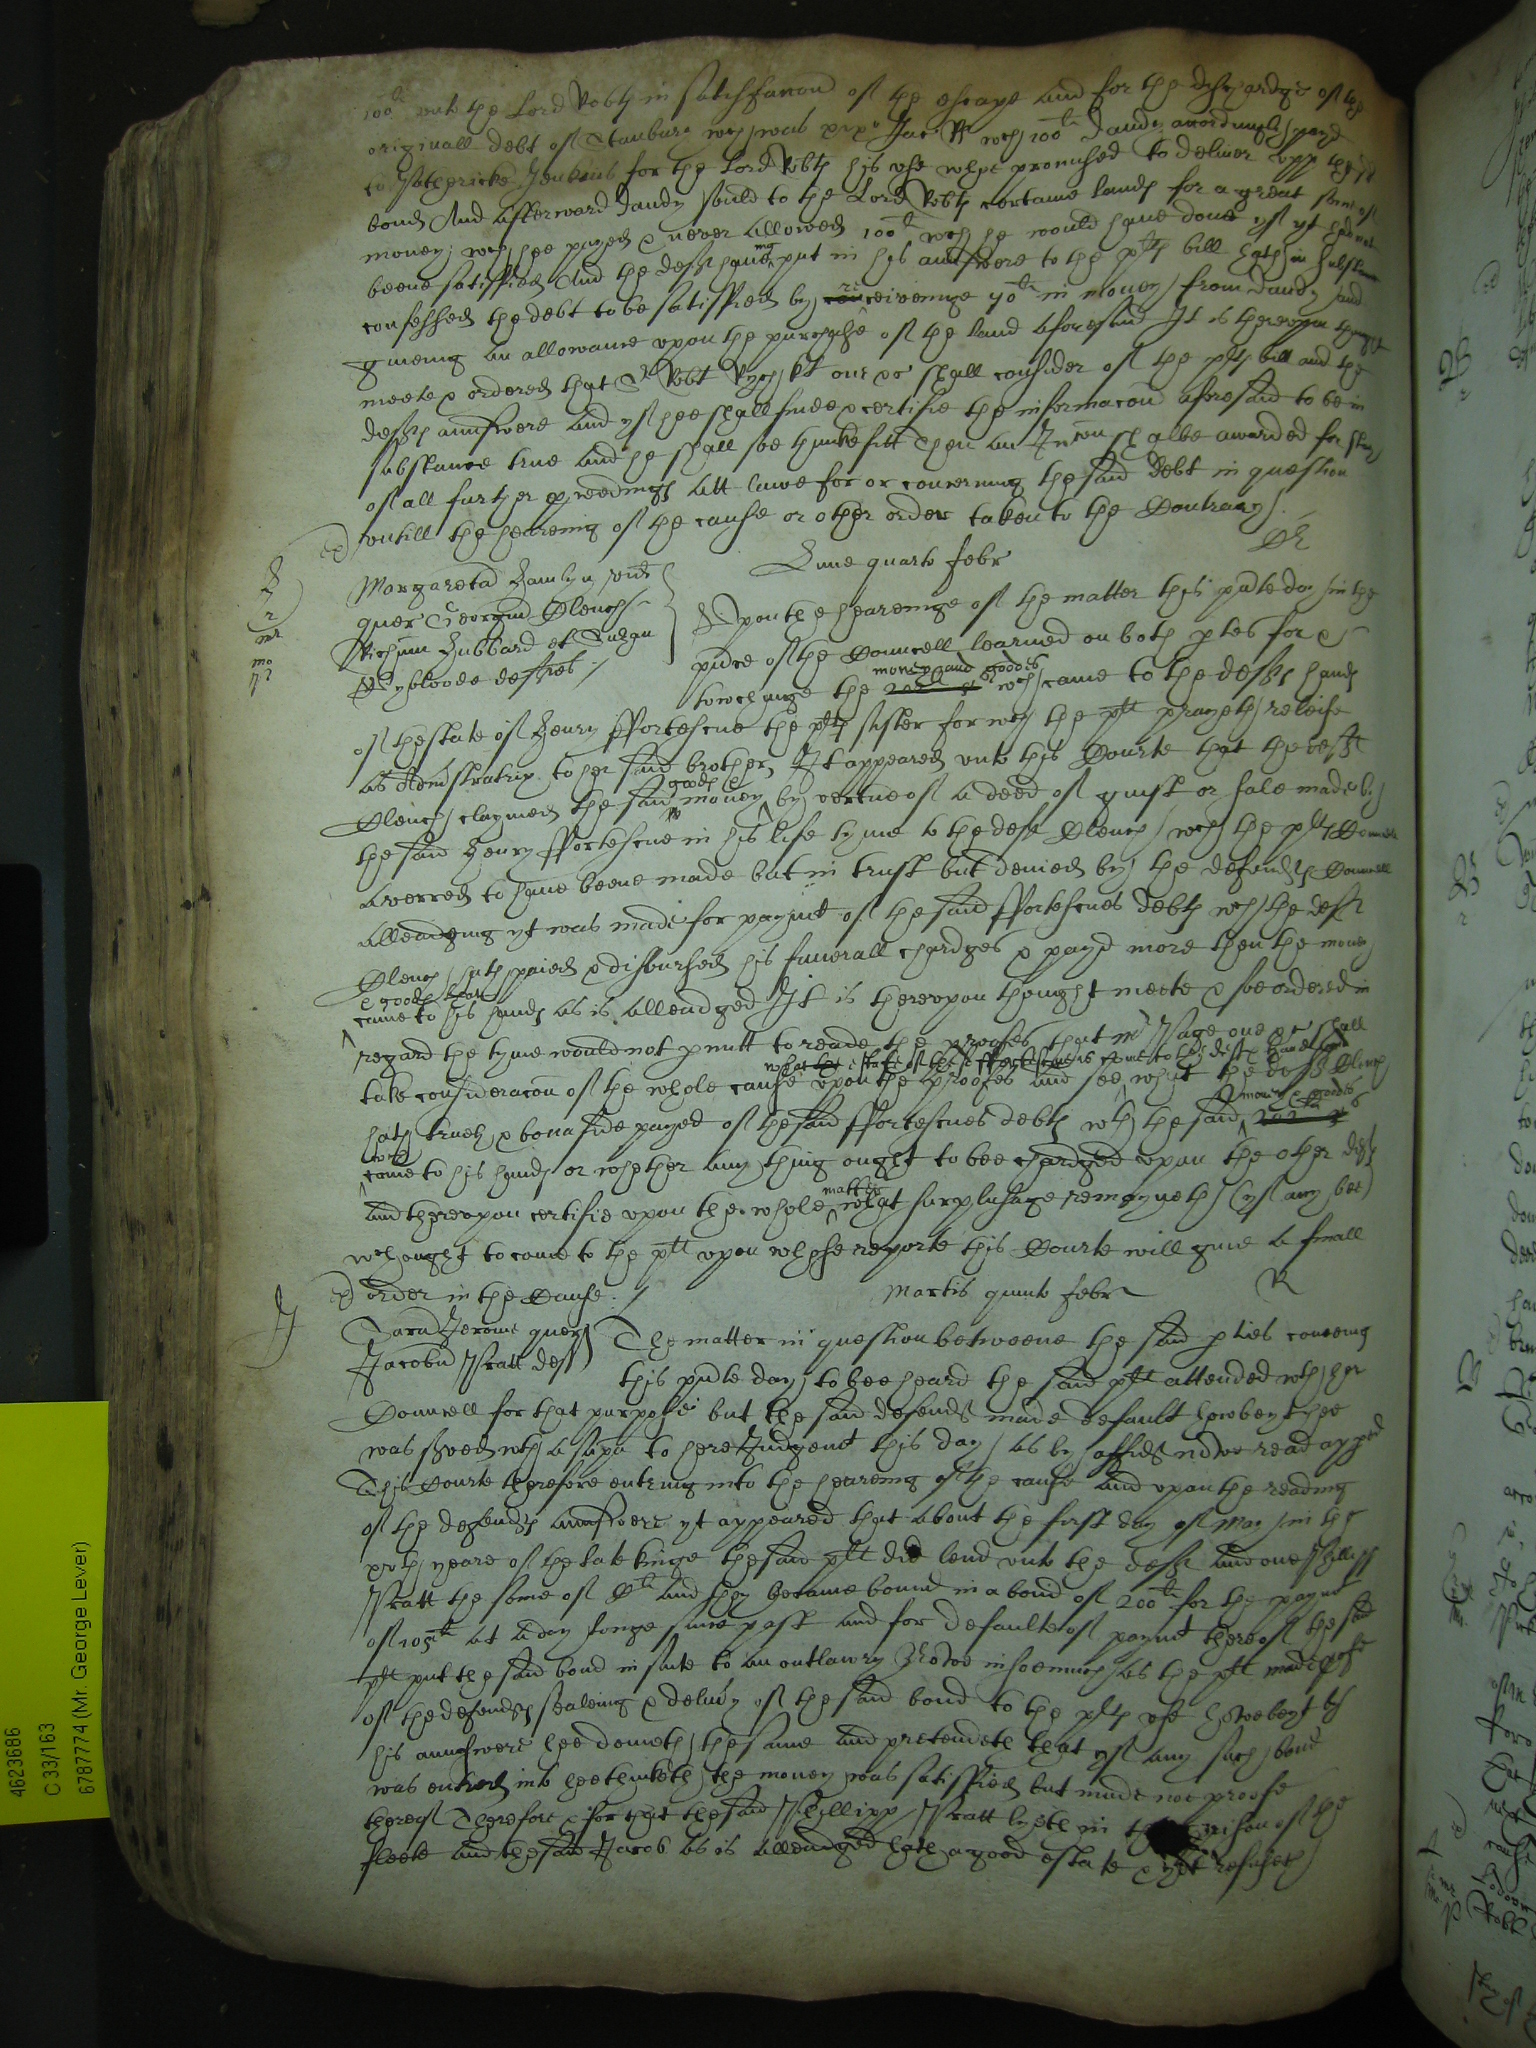 100li unto the Lord Robtes in satisfaccon of the escape and for the dischardge of the
originall debt of Stanbury wch was xixo Jac Rs wch 100li Dandy accordingly payd
to Jenkins for the Lord Robtes his use whoe promised to deliver upp the sd
bond And afterward Dandy sould to the Lord Robtes certaine landes for a great some of
money, wch hee payed & never allowed 100li wch he would have done yf yt had not
beene satisfied And the deft haveing put in his answere to the pltes bill hath in substance
confessed the debt to be satisfied by receiveinge 70li in money from Dandy and
giveing an allowance upon the purchase of the land aforesaid It is thereupon thought
meete & ordered that Sr Robt Rych kt one &c shall consider of the pltes bill and the
deftes answere and yf hee shall finde & certifie the informacon aforesaid to be in
substance true and he shall soe thinke fitt Then an Injuncon shalbe awarded for stay
of all further proceedinges att lawe for or concerning the said debt in question
untill the heareing of the cause or other order taken to the Contrary.
Lune quarto febr
Margareta Hamlyn vid
quer Georgius Clench
Richus Hubbard et Susan
Wybloode deftes
Upon the hearinge of the matter this pnte day in the
pnce of the Councell learned on both ptes for &
towchinge the money and goodes wch came to the deftes handes
of the state of Henry ffortescue the pltes sister for wch the plt prayeth releife
as Admstratrix to her said brother, It appeared unto this Courte that the deft
Clench claymed the said goodes & money by vertue of a deed of guift or sale made by
the said Henry ffortescue in his life tyme to the deft Clench, wch the pltes Councell
averred to have beene made but in trust but denied by the defendtes Councell
alleadging yt was made for paymt of the said ffortescues debtes wch the deft
Clench hath paied & disbursed his funerall chardges & payd more then the money
& goodes that
came to his handes as is alleadged It is thereupon thought meete & soe ordered in
regard the tyme would not pmitt to reade the proofes, that mr Page one &c shall
take consideracon of the whole cause upon the proofes and see what the deft Clench
what estate of the sd ffortescue is come to his deftes handes and
hath truely & bona fide payed of the said ffortescues debtes wth the said money & goodes
wch
came to his handes or whether any thing ought to bee chardged upon the other deftes
and thereupon certifie upon the whole matter what surplusage remayneth (yf any bee)
wch ought to come to the plt upon whose reporte this Courte will give a finall
order in the Cause.
Martis quinto febr
Sara Jerome quer
Jacobus Pratt deft
The matter in question betweene the said pties comeing
this pnte day to bee heard the said plt attended wth her
Councell for that purpose but the said defendt made default howbeyt hee
was served wth a sapa to heare Judgemt this day, as by affidt nowe read appeared
This Courte therefore entring into the heareing of the cause And upon the reading
of the defendtes answere yt appeared that about the first day of May in the
xvth yeare of the late kinge the said plt did lend unto the deft and one Phillipp
Pratt the some of Cli and they became bound in a bond of 200li for the paymt
of 105li at a day longe since past and for defaulte of paymt thereof the said
plt put the said bond in suite to an outlawry Nowe insoemuch as the plt made proofe
of the defendtes sealeing & delivy of the said bond to the pltes use howbeyt by
his answere hee denieth the same and pretendeth that yf any such bond
was entred into hee thinketh the money was satisfied but made noe proofe
thereof Therefore & for that the said Phillipp Pratt lyeth in the prison of the
fleete and the said Jacob as is alleadged hath a good estate & yet refuseth
4623686
C 33/163
6787774 (Mr. George Lever)